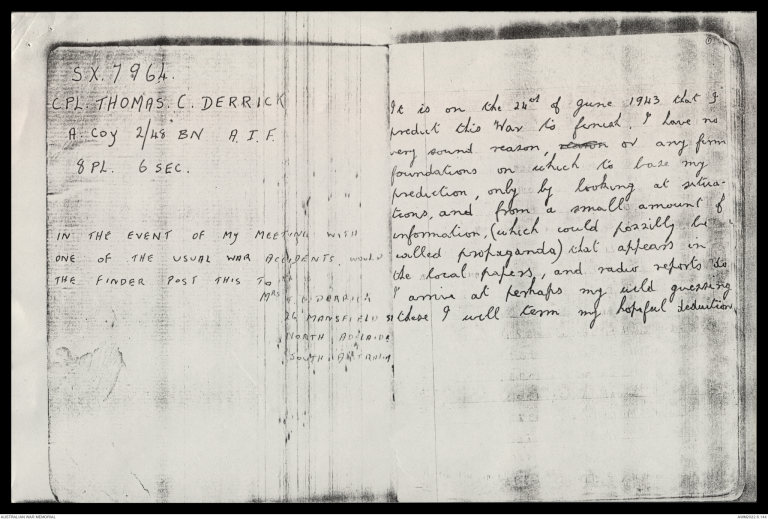 S.X. 7964.
CPL. THOMAS. C. DERRICK
A. Coy 2/48 BN A.I.F.
8 PL. 6 SEC.
IN THE EVENT OF MY MEETING WITH
ONE OF THE USUAL WAR ACCIDENTS, WOULD
THE FINDER POST THIS TO
MRS T. C. DERRICK
26 MANSFIELD ST
NORTH ADELAIDE
SOUTH AUSTRALIA
It is on the 24st of June 1943 that I
predict this War to finish. I have no
very sound reason, reason or any firm
foundations on which to base my
prediction, only by looking at situa-
tions, and from a small amount of
information, (which could possibly be
called propaganda) that appears in
the local papers, and radio reports do
I arrive at perhaps my wild guessing
these I will term my hopeful deduction
AUSTRALIAN WAR MEMORIAL